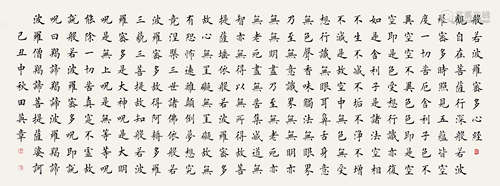 般若波羅蜜多心經
觀自在菩薩行深般若波
羅蜜多時照見五蘊皆空
度一切苦厄舍利子色不
異空空不異色色即是空
空即是色受想行識亦復
如是舍利子是諸法空相
不生不滅不垢不淨不增
不減是故空中無色無受
想行識無眼耳鼻舌身意
無色聲香味觸法無眼界
乃至無意識界無無明亦
無無明盡乃至無老死亦
無老死盡無苦集滅道無
智亦無得以無所得故菩
提薩埵依般若波羅蜜多
故心無罣礙無罣礙故無
有恐怖遠離顛倒夢想究
竟涅槃三世諸佛依般若
波羅蜜多故得阿耨多羅
三藐三菩提故知般若波
羅蜜多是大神呪是大明
呪是無上呪是無等等呪
能除一切苦真實不虛故
說般若波羅蜜多呪即說
呪曰羯諦羯諦波羅羯諦
波羅僧羯諦菩提薩婆訶
己丑中秋田英章